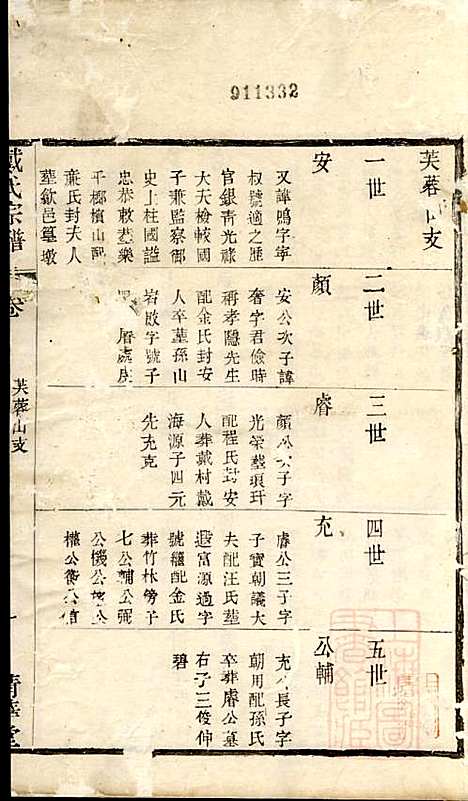 911332
芙蓉山支
一世
安
又諱鳴字寧
叔號適之歷
官銀青光祿
大夫檢較國
子兼監察御
史上柱國諡
忠恭敕塟樂
平櫛檳山配
葉氏封夫人
塟歙邑篁墩
二世
顏
安公次子諱
奢字君儉時
稱孝隱先生
配金氏封安
人卒塟孫山
岩啟字號子
厝處房
三世
睿
顏公子字
光榮塟瑣玕
配程氏封安
人葬戴村戴
海源子四元
先充克
四世
充
睿公三子字
子實朝議大
夫配汪氏塟
遐富源過字
號繼配金氏
葬竹林傍子
七公輔公弼
公機公公
權公衡公信
五世
公輔
充公長子字
朝用配孫氏
卒葬睿公墓
右子三俊仲
碧
戴氏宗譜
卷
芙蓉山支
一
清華堂